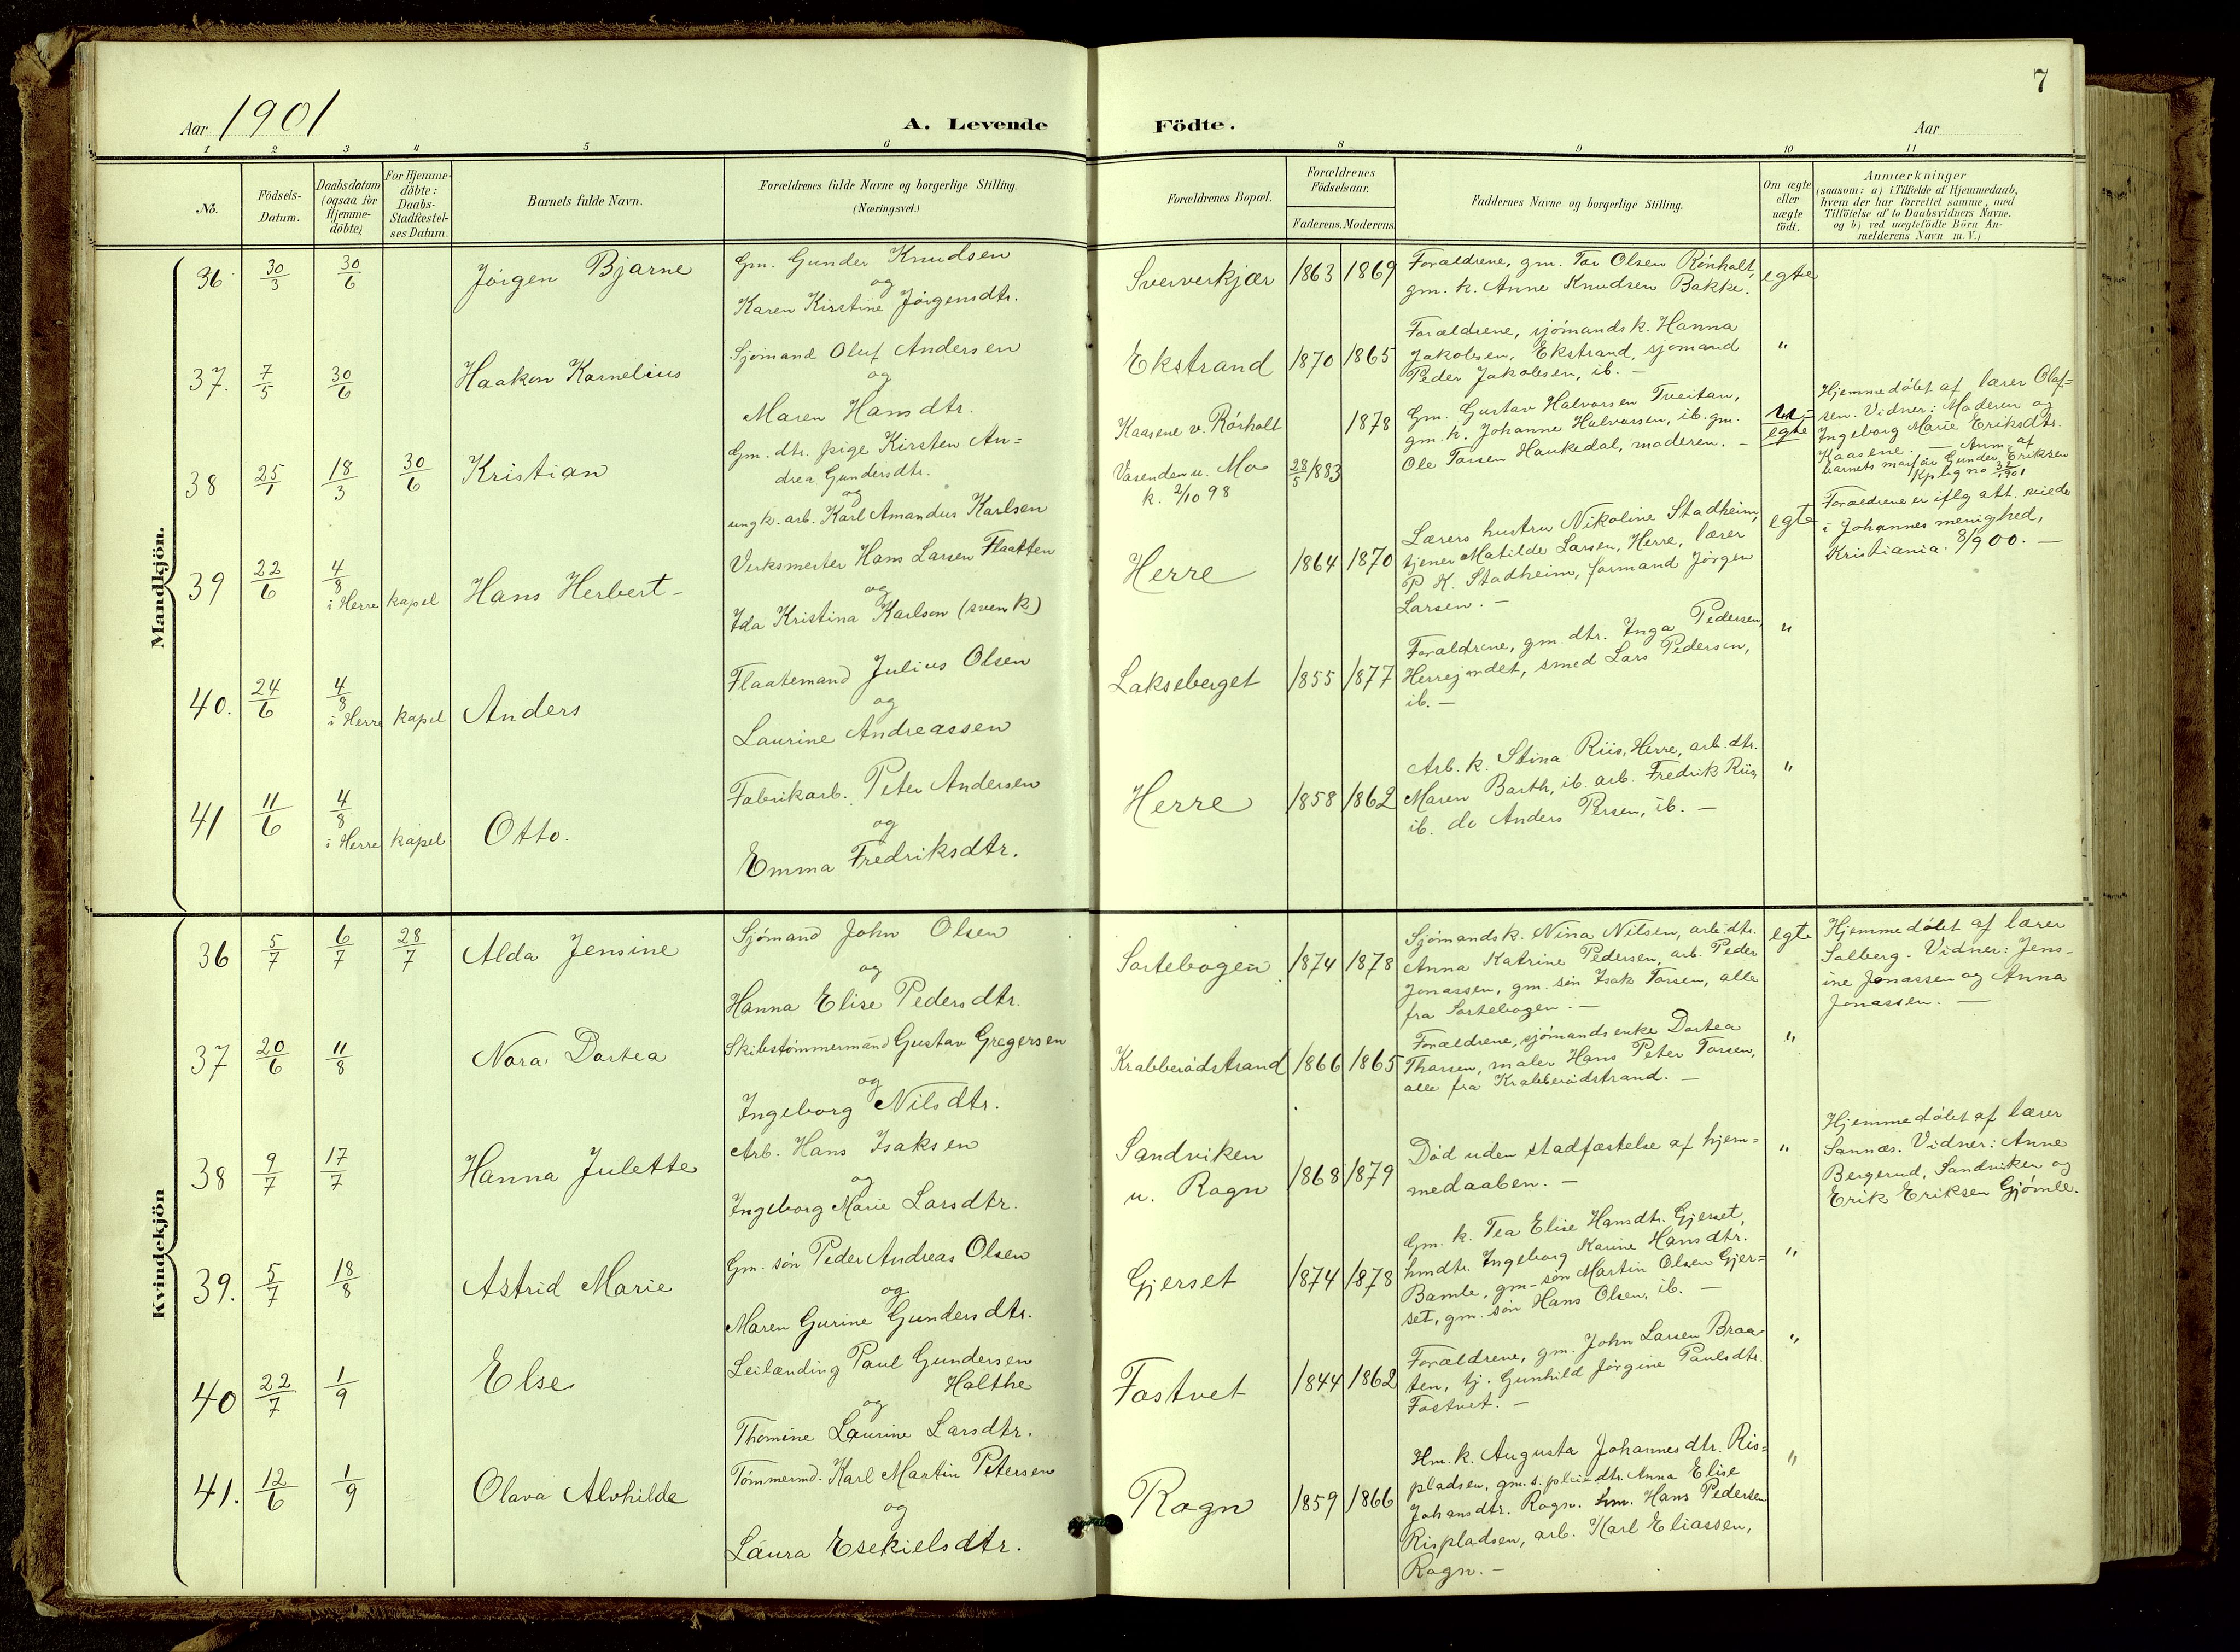 7
Aar 1901
A. Levende
Födte.
Aar
1 2 3 4 5 6 8 9 10 11
No.
Födsels-
Datum.
Daabsdatum
(ogsaa for
Hjemme-
döbte)
For Hjemme-
döbte:
Daabs-
Stadfæstel-
ses Datum.
Barnets fulde Navn.
Forældrenes fulde Navne og borgerlige Stilling.
(Næringsvei.)
Forældrenes Bopæl.
Forældrenes
Födselsaar.
Faderens. Moderens
Faddernes Navne og borgerlige Stilling.
Om ægte
eller
uægte
født.
Anmærkninger
(saasom: a) i Tilfælde af Hjemmedaab,
hvem der har forrettet samme, med
Tilföielse af to Daabsvidners Navne.
og b) ved uægtefödte Börn An-
melderens Navn m.V.)
Mandkjön.
36 30/3 30/6 Jörgen Bjarne
Gm. Gunder Knudsen
og
Karen Kirstine Jörgensdtr.
Sververkjær 1863 1869
Forældrene, gm. Tor Olsen Rönholt,
gm. k. Anne Knudsen Bakke.
egte
37. 7/5 30/6 Haakon Kornelius
Sjömand Oluf Andersen
og
Maren Hansdtr.
Ekstrand 1870 1865
Forældrene, sjömands k. Hanna
Jakobsen, Ekstrand, sjömand
Peder Jakobsen, ib. —
"
38 25/1 18/3 30/6 Kristian
Gm. dtr. pige Kirsten An=
drea Gundersdtr.
og
ungk. arb. Karl Amandus Karlsen
Kaasene v. Rörholt 1878
Vasenden u. Mo 28/5/883
k. 2/10 98
Gm. Gustav Halvorsen Tveitan,
gm. k. Johanne Halvorsen, ib. gm.
Ole Torsen Haukedal, moderen. —
u-
egte
Hjemmedöbt af lærer Olaf=
sen. Vidner: Moderen og
Ingeborg Marie Eriksdtr.
Kaasene. — Anm. af
barnets morfar Gunder Eriksen
39 22/6 4/8 i Herre kapel Hans Herbert -
Verksmester Hans Larsen Flaatten
og
Ida Kristina Karlson (svensk)
Herre 1864 1870
Lærers hustru Nikoline Stadheim,
tjener Matilde Larsen, Herre, lærer
P. K. Stadheim, formand Jörgen
Larsen. —
egte
Forældrene er iflg att. viede
i Johannes menighed,
Kristiania. 8/9 00. —
40. 24/6 4/8 i Herre kapel Anders
Flaatemand Julius Olsen
og
Laurine Andreassen
Lakseberget 1855 1877
Forældrene, gm. dtr. Inga Pedersen,
Herrejordet, smed Lars Pedersen,
ib. —
"
41 11/6 4/8 i Herre kapel Otto.
Fabrikarb. Peter Andersen
og
Emma Fredriksdtr.
Herre 1858 1862
Arb. k. Stina Riis, Herre, arb. dtr.
Maren Barth, ib. arb. Fredrik Riis
ib. do Anders Persen, ib. —
"
Kvindekjön
36 5/7 6/7 28/7 Alda Jensine
Sjömand John Olsen
og
Hanna Elise Pedersdtr.
Sortebogen 1874 1878
Sjömands k. Nina Nilsen, arb. dtr.
Anna Katrine Pedersen, arb. Peder
Jonassen, gm. sön Isak Torsen, alle
fra Sortebogen. —
egte
Hjemmedöbt af lærer
Salberg. Vidner: Jens-
ine Jonassen og Anna
Jonassen. —
37 20/6 11/8 Nora Dortea
Skibstömmermand Gustav Gregersen
og
Ingeborg Nilsdtr.
Krabberödstrand 1866 1865
Forældrene, sjömands enke Dortea
Thorsen, maler Hans Peter Torsen,
alle fra Krabberödstrand. —
"
38 9/7 17/7 Hanna Julette
Arb. Hans Isaksen
og
Ingeborg Marie Larsdtr.
Sandviken
u. Rogn 1868 1879
Död uden stadfæstelse af hjem=
medaaben. —
"
Hjemmedöbt af lærer
Sannæs. Vidner: Anne
Bergerud, Sandviken og
Erik Eriksen Gjömle.
39. 5/7 18/8 Astrid Marie
Gm. sön Peder Andreas Olsen
og
Maren Gurine Gundersdtr.
Gjerset 1874 1878
Gm. k. Tea Elise Hansdtr. Gjerset,
hmdtr. Ingeborg Karine Hansdtr.
Bamle, gm- sön Martin Olsen Gjer=
set, gm. sön Hans Olsen, ib. —
"
40 22/7 1/9 Else
Leilænding Paul Gundersen
Holthe
og
Thomine Laurine Larsdtr.
Fostvet 1844 1862
Forældrene, gm. John Larsen Braa-
ten, tj. Gunhild Jörgine Paulsdtr.
Fostvet. —
"
41. 12/6 1/9 Olava Alvhilde
Tömmermd. Karl Martin Petersen
og
Laura Esekielsdtr.
Rogn 1859 1866
Hm. k. Augusta Johannesdtr. Ris=
pladsen, gm.s. pleiedtr. Anna Elise
Johansdtr. Rogn. hm. Hans Pedersen
Rispladsen, arb. Karl Eliassen,
Rogn. —
"